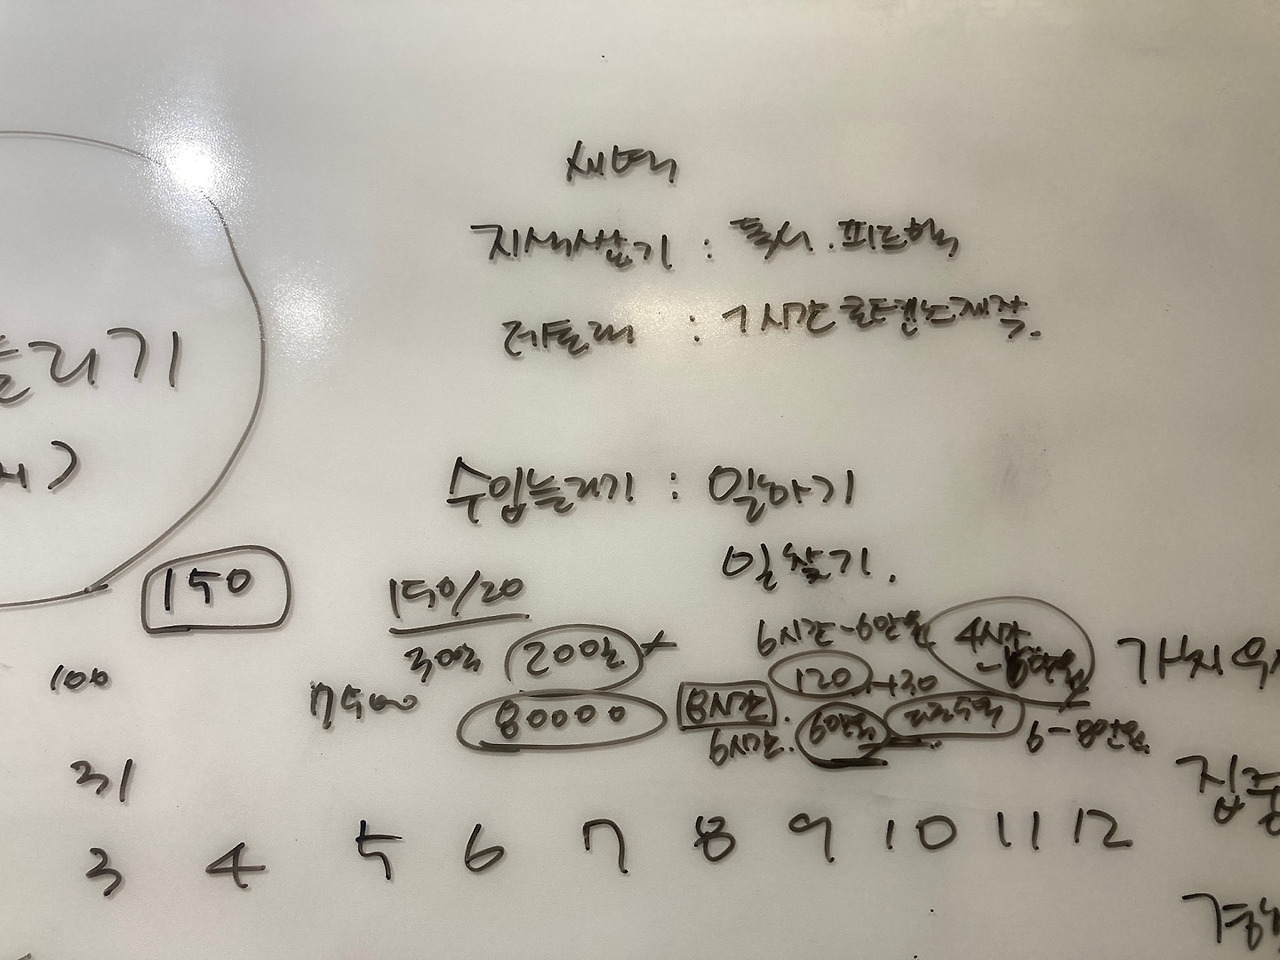 새벽
지식쌓기 : 독서. 피드백
레톨러 : 1시간 콘텐츠제작.
늘리기
수입늘리기 : 일하기
일찾기.
150
150/20
30일 200일
6시간-6만원 4시간
120 +30
100
75000 80000 8시간.
6시간. 6만원 6-80만원
31
3 4 5 6 7 8 9 10 11 12